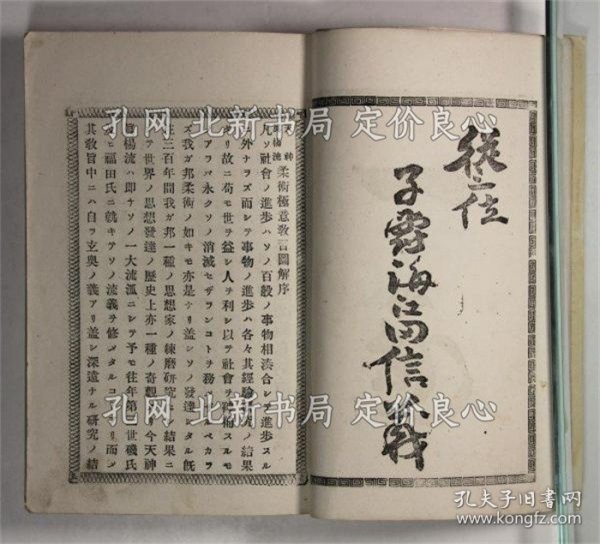 從二位
子爵海江田信義
天神
真楊流 柔術極意教圖解序
凡ソ社會ノ進歩ハソノ百般ノ事物相湊合シテ進歩スル
外ナラズ而シテ事物ノ進歩ハ各々其經驗ノ結果
リ故ニ苟モ世ヲ益シ人ヲ利シ以テ社會ヲスルモ
アラバ永クソノ消滅セザランコトヲ務ベカラ
ズ我ガ邦柔術ノ如キモ亦是ナリ蓋シソノ發達タル既
三百年間我ガ邦一種ノ思想家ノ練磨研究ノ結果ニ
テ世界ノ思想發達ノ歴史上亦一種ノ奇觀今天神
楊流ハ即チソノ一大流派ニシテ予モ往年第世磯氏
福田氏ニ就キテソノ流義ヲ修メタルコリ而シ
其教旨中ニハ自ラ玄奥ノ義アリ蓋シ深遠ナル研究ノ結
孔网 北新书局 定价良心
孔网 北新书局 定价良心
孔网 北新书局 定价良心
孔夫子旧书网
www.kongfz.com